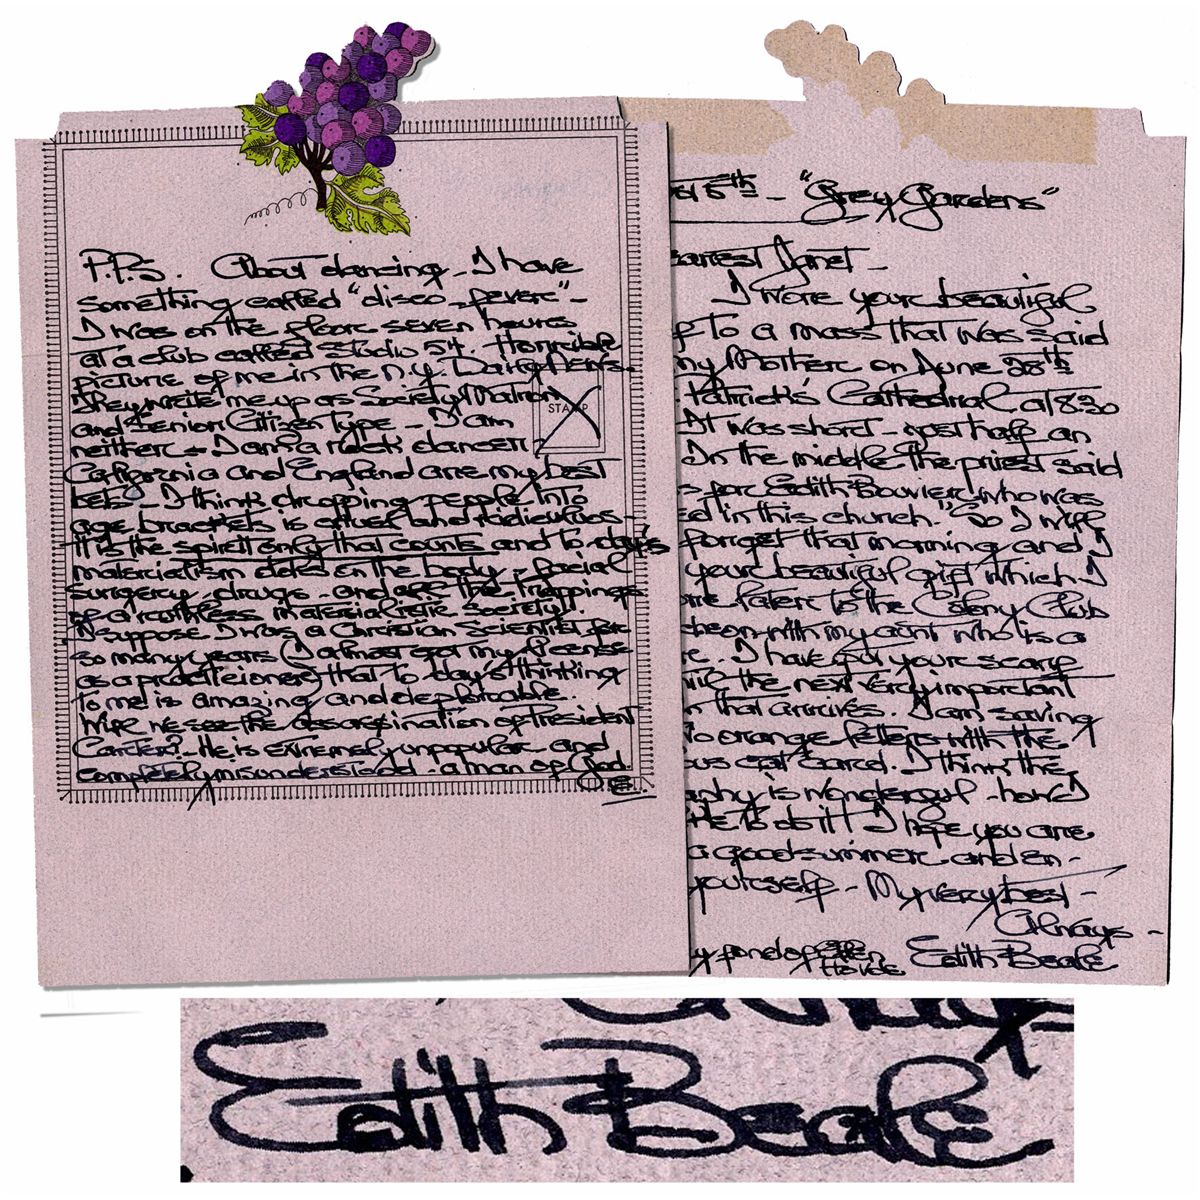 P.P.S. About dancing - I have
something called "disco - fever" -
I was on the floor seven hours
at a club called Studio 54. Horrible
picture of me in the N.Y. Daily News.
They write me up as Society Matron
and Senior Citizen type - I am
neither - I am a rock dancer!
California and England are my best
bets - I think dropping people into
age brackets is cruel and ridiculous -
it is the spirit only that counts and to-day's
materialism dotes on the body - facial
surgery, drugs - and all the trappings
of a ruthless materialistic society!
I suppose I was a Christian Scientist for
so many years (I almost got my license
as a practitioner) that to-day's thinking
to me is amazing and deplorable.
Will we see the assasination of President
Carter? - He is extremely unpopular and
completely misunderstood - a man of God.
E.
STAMP
5th - "Grey Gardens"
earest Janet -
I wore your beautiful
to a mass that was said
my Mother on June 28th
Patrick's Cathedral at 8:30
It was short - just half an
In the middle the priest said
s for Edith Bouvier who was
ed in this church." So I will
forget that morning and I
your beautiful gift which I
ore later to the Colony Club
cheon with my aunt who is a
re. I have put your scarf
the next very important
n that arrives. I am saving
o orange letters with the
ous cat card. I think the
aphy is wonderful - how I
like to do it! I hope you are
a good summer and en-
yourself - My very best -
Always -
y fond of
Edith Beale
Edith Beale